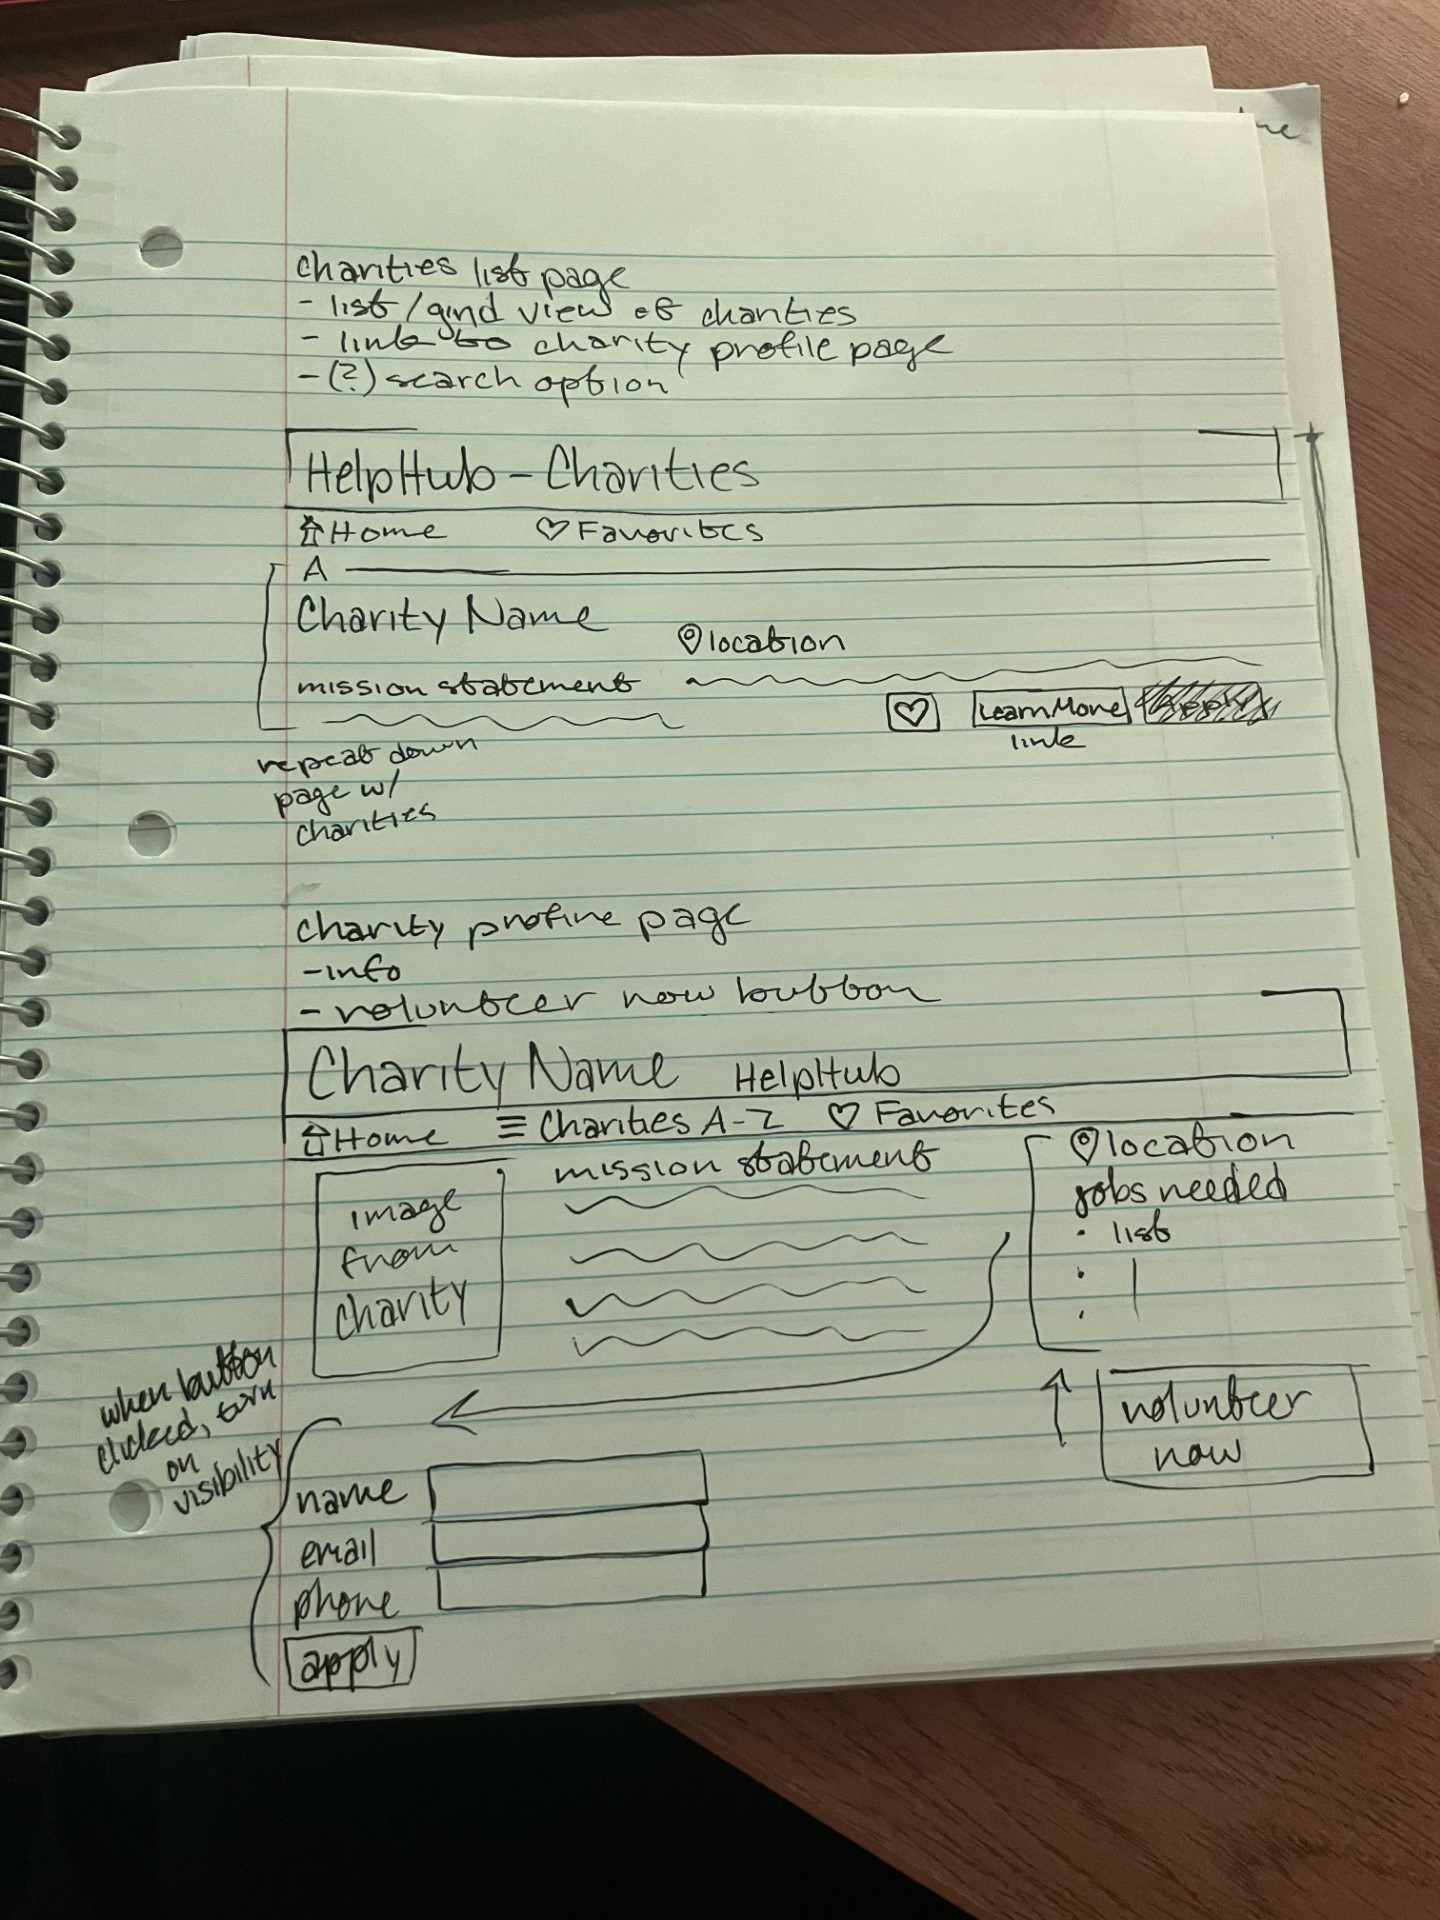 charities list page
- list/grid view of charities
- link to charity profile page
- (?) search option
HelpHub - Charities
Home ♡ Favorites
A
Charity Name
location
mission statement
♡ Learn More
link
repeat down
page w/
charities
charity profine page
- info
- volunteer now button
Charity Name HelpHub
Home ≡ Charities A-Z ♡ Favorites
image
from
charity
mission statement
location
jobs needed
• list
•
•
volunteer
now
when button
clicked, turn
on
visibility
name
email
phone
apply